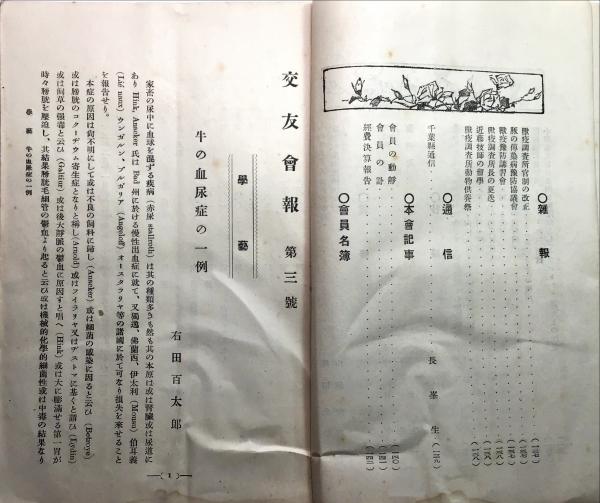 ◯雜報
獸疫調査所官制の改正
豚の傳染病豫防協議會
獸疫豫防講習會
獸疫調査所長の更迭
近藤技師の留學
獸疫調査所動物供養祭
◯通信
千葉縣通信
長峯生
◯本會記事
會員の動靜
會員の訃
經費決算報告
◯會員名簿
交友會報 第三號
學藝
牛の血尿症の一例
右田百太郎
家畜の尿中に血球を混ずる疾病(赤尿 stalroth)は其の種類多きも然も其の本原は或は腎臟或は尿道に
あり Hink, Anacker 氏は Bad 州に於ける慢性出血症に就て、又獨逸、佛蘭西、伊太利(Moussu)伯耳義
(Liénaux)ウンガルン、ブルガリア(Angeloff)オースタラリヤ等の諸國に於て可なり損失を來せること
を報告せり。
本症の原因は尙不明にして或は不良の飼料に歸し(Anacker)或は細菌の感染に因ると云ひ(Detroye)
或は膀胱のコクーヂウム寄生症となりと稱し(Arnold)或はフィラリヤ又はヂストマに基くと謂ひ(Lydtin)
或は間草の强毒と云ひ(Galtier)或は後大靜脈の鬱血に原因すと唱へ(Hink)或は大に膨滿せる第一胃が
時々膀胱を壓迫し、其結果膀胱毛細管の鬱血より起ると云ひ或は機械的化學的細菌性或は中毒の結果なり
學藝 牛の血尿症の一例
(1)